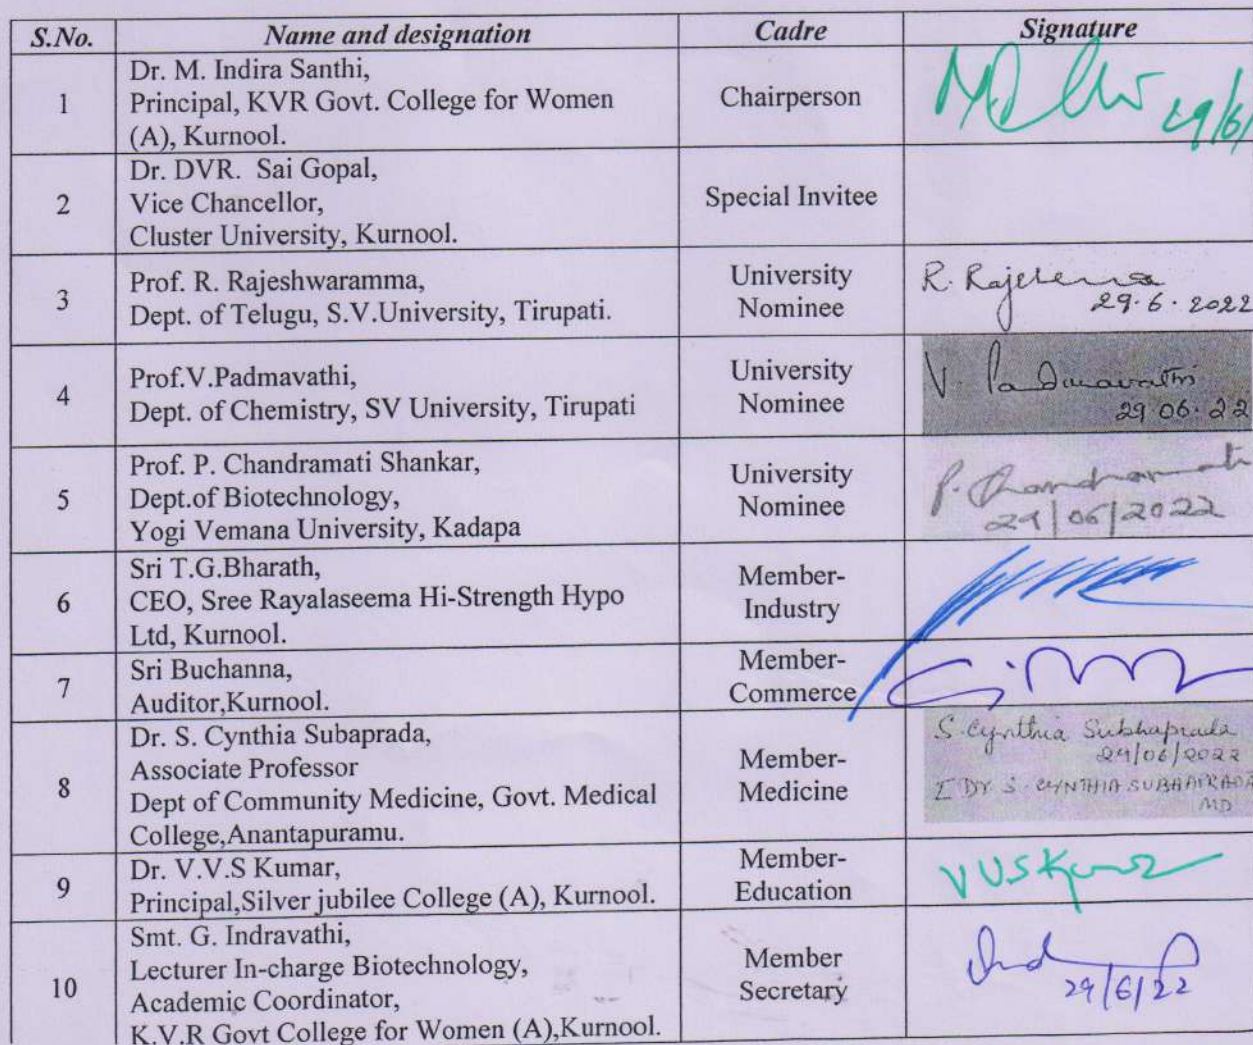 S.No. Name and designation Cadre Signature
1
Dr. M. Indira Santhi,
Principal, KVR Govt. College for Women
(A), Kurnool.
Chairperson
29/6/
2
Dr. DVR. Sai Gopal,
Vice Chancellor,
Cluster University, Kurnool.
Special Invitee
3
Prof. R. Rajeshwaramma,
Dept. of Telugu, S.V.University, Tirupati.
University
Nominee
R.
29.6.2022
4
Prof.V.Padmavathi,
Dept. of Chemistry, SV University, Tirupati
University
Nominee
V. Padmavathi
29.06.22
5
Prof. P. Chandramati Shankar,
Dept.of Biotechnology,
Yogi Vemana University, Kadapa
University
Nominee
P. Chandramati
29/06/2022
6
Sri T.G.Bharath,
CEO, Sree Rayalaseema Hi-Strength Hypo
Ltd, Kurnool.
Member-
Industry
7
Sri Buchanna,
Auditor,Kurnool.
Member-
Commerce
8
Dr. S. Cynthia Subaprada,
Associate Professor
Dept of Community Medicine, Govt. Medical
College,Anantapuramu.
Member-
Medicine
S. Cynthia Subhaprada
29/06/2022
DR S. CYNTHIA SUBHAPRADA
MD
9
Dr. V.V.S Kumar,
Principal,Silver jubilee College (A), Kurnool.
Member-
Education
VVSKumar
10
Smt. G. Indravathi,
Lecturer In-charge Biotechnology,
Academic Coordinator,
K.V.R Govt College for Women (A),Kurnool.
Member
Secretary
29/6/22